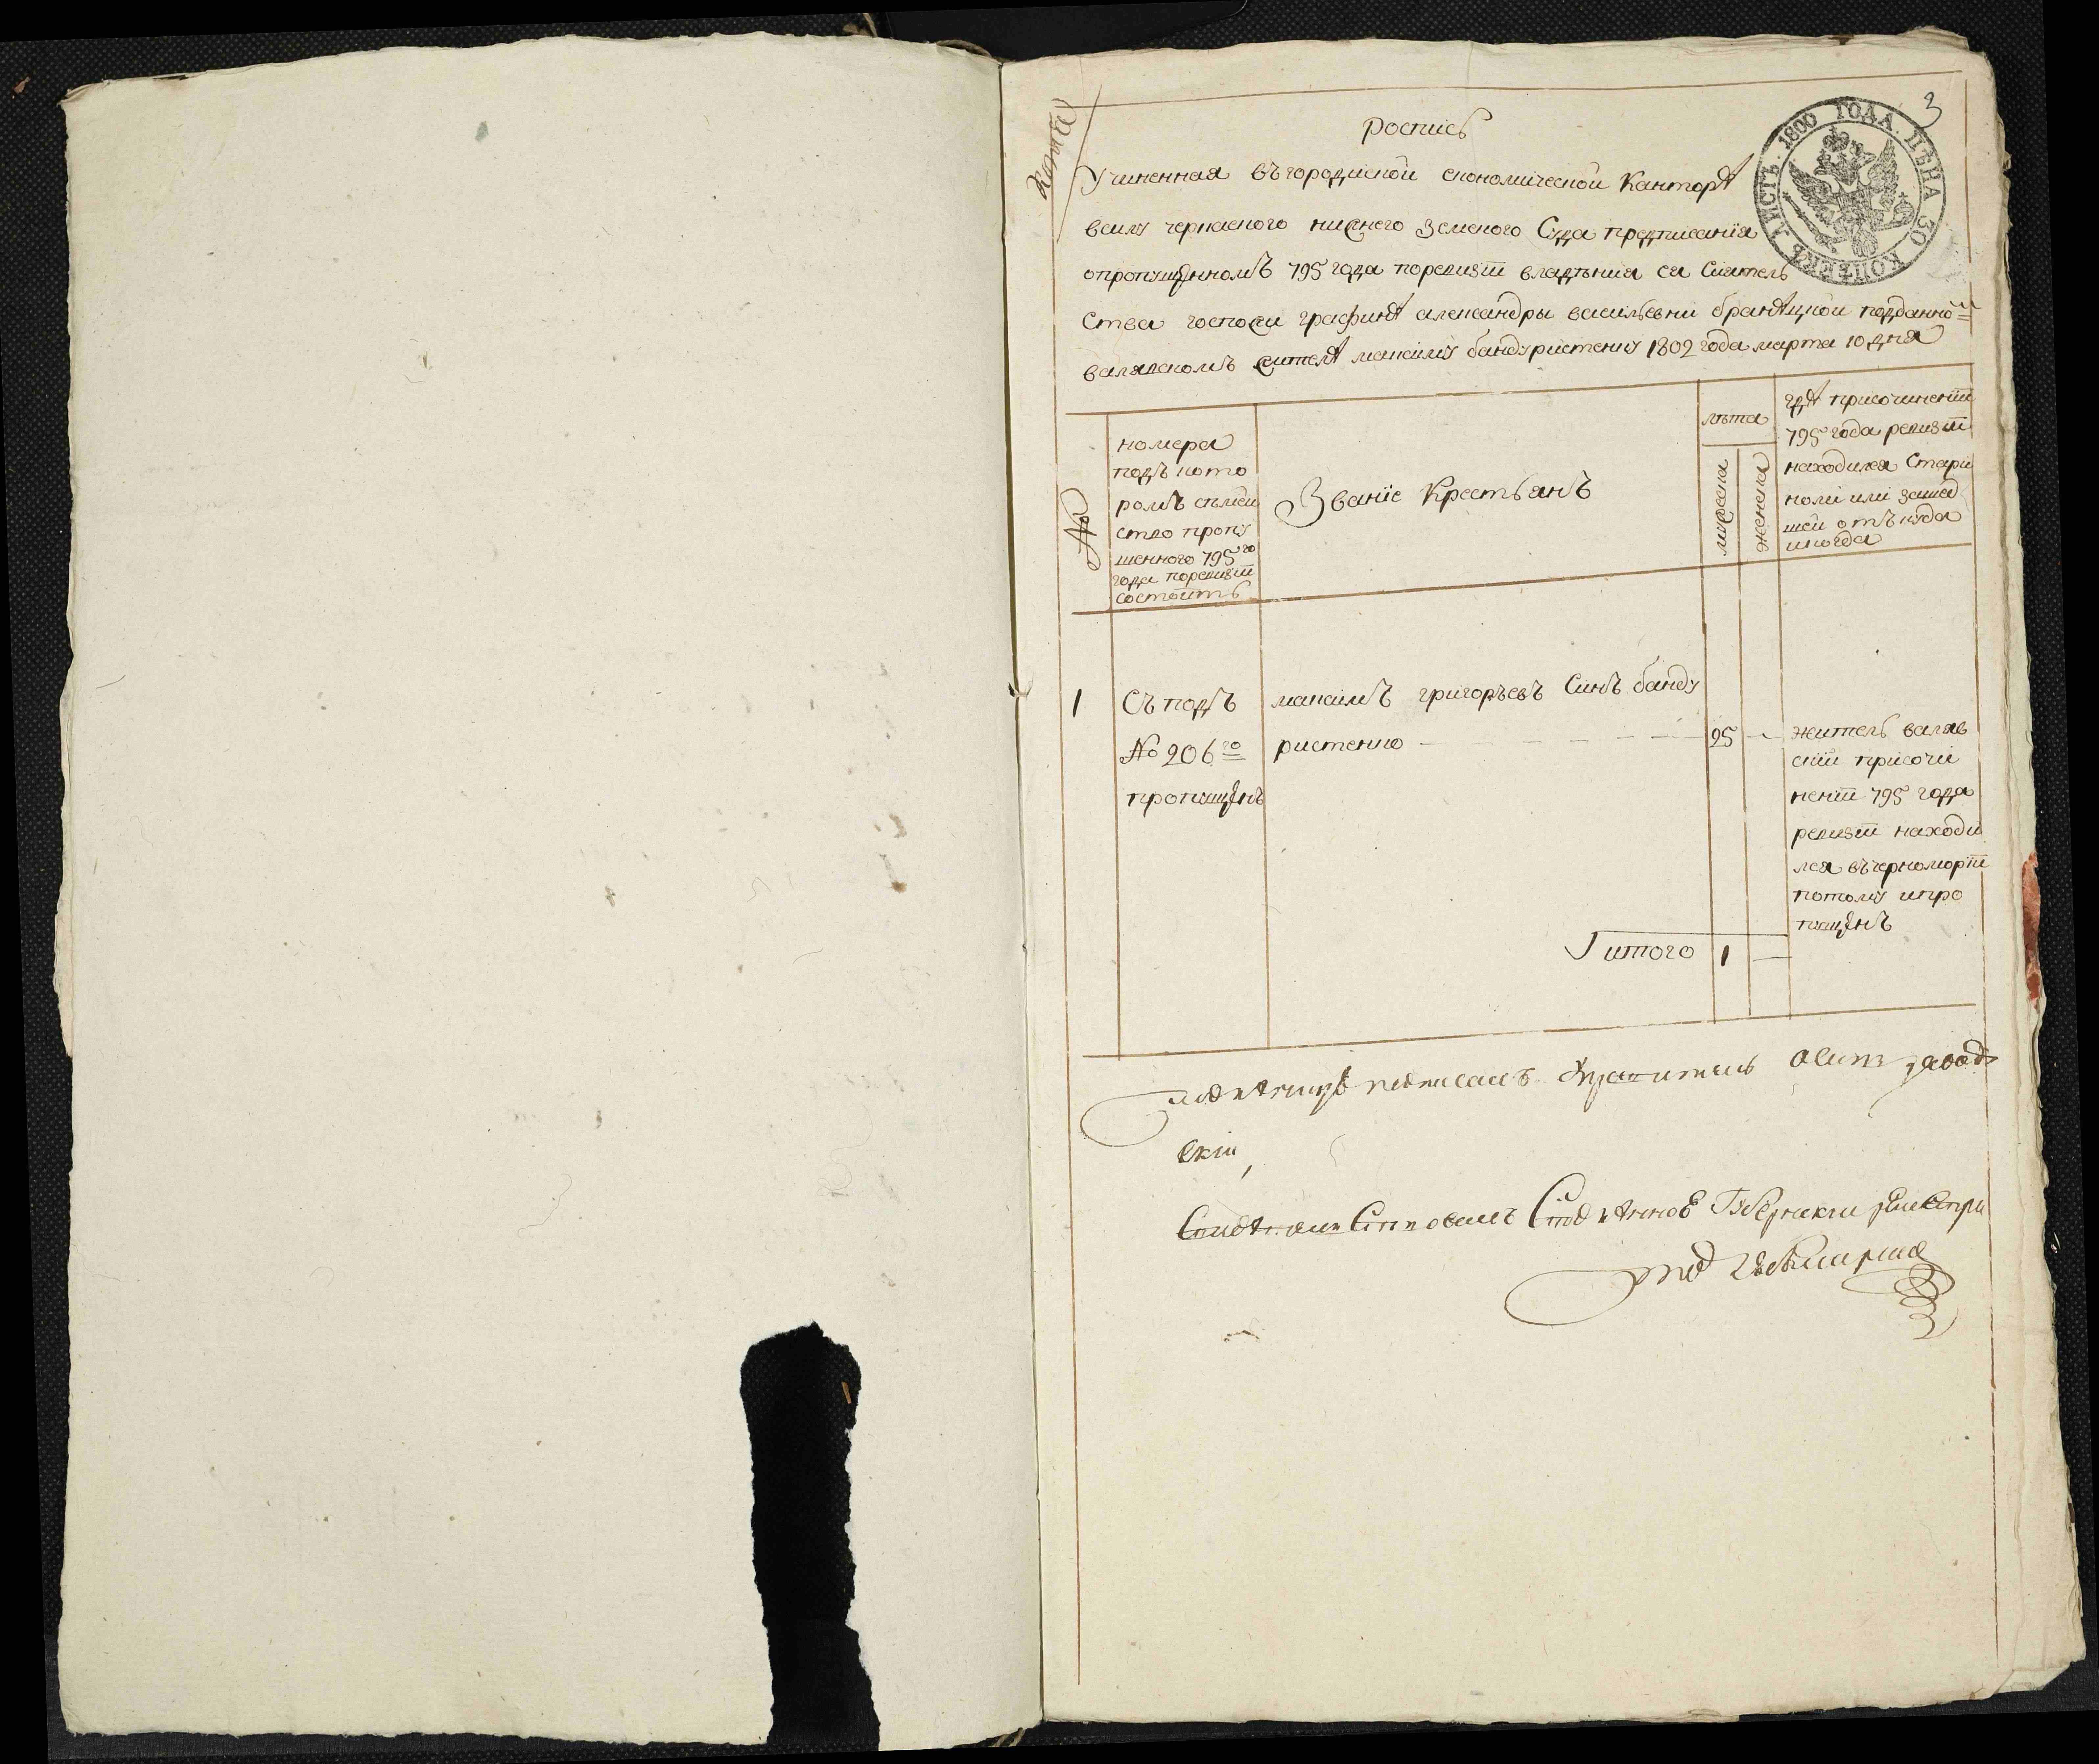 Копія
3
1800 ГОДА. ЦѢНА 30 КОПѢЕКЪ ЛИСТЪ.
роспись
Учиненная въгородиской економической Канторѣ
всилу черкаского нижнего Земского Суда предписанія
опропущенномъ 795 года поревизіи владѣнія ея Сіятель
Ства госпожи графинѣ александры васильевни браницкой подданно
валявскомъ жителѣ максиму бандуристенку 1802 года марта 10 дня
№
номера
подъ кото
ромъ сѣмей
ство пропу
щенного 795го
года поревизіи
состоитъ
Званіе Крестьянъ
лѣта
мужеска
женска
гдѣ присочиненіи
795 года ревизіи
находился Стари
ной или зашед
шей отъкуда
иногда
1
Съ подъ
№ 206го
пропущенъ
максимъ григорьевъ Синъ банду
ристенко
25
житель валяв
скій присочи
неніи 795 года
ревизіи находи
лся въчерноморіи
потому ипро
пущенъ
итого 1
подписалъ
скій
Губернски регистра